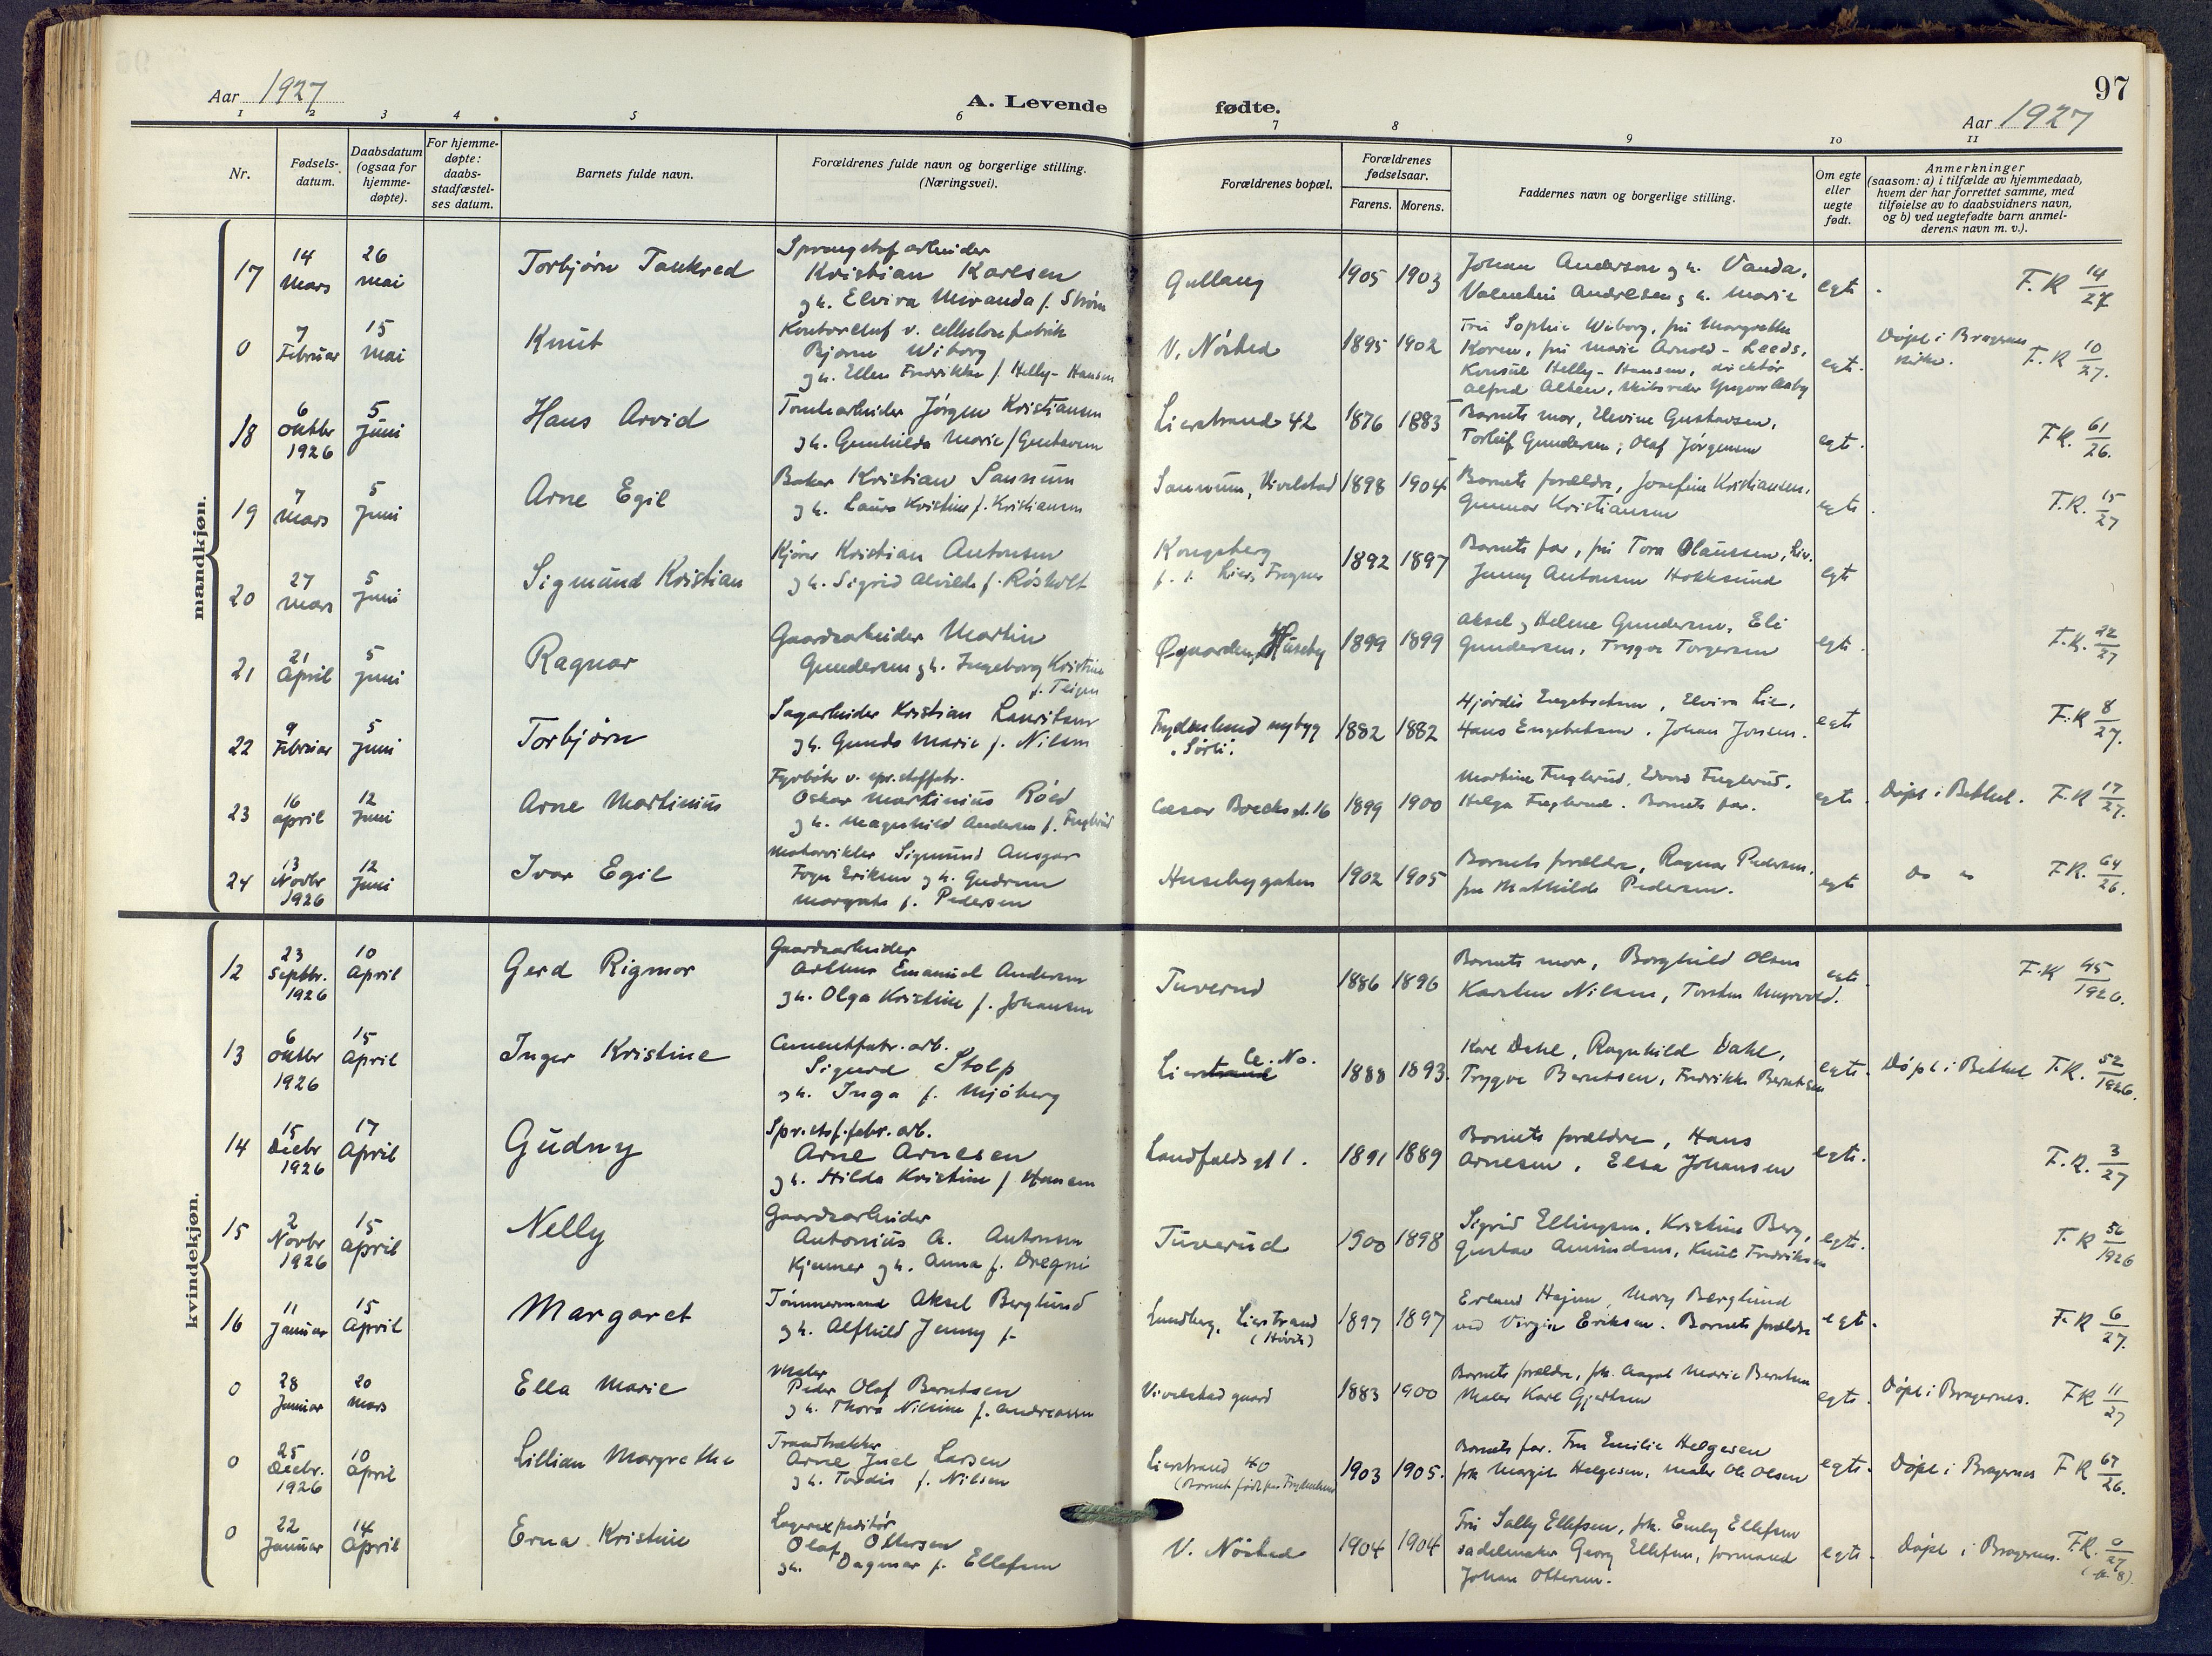 97
Aar 1927
A. Levende fødte.
Aar 1927
1 2 3 4 5 6 7 8 9 10 11
Nr.
Fødsels-
datum.
Daabsdatum
(ogsaa for
hjemme-
døpte).
For hjemme-
døpte:
daabs-
stadfæstel-
ses datum.
Barnets fulde navn.
Forældrenes fulde navn og borgerlige stilling.
(Næringsvei).
Forældrenes bopæl.
Forældrenes
fødselsaar.
Farens. Morens.
Faddernes navn og borgerlige stilling.
Om egte
eller
uegte
født.
Anmerkninger
(saasom: a) i tilfælde av hjemmedaab,
hvem der har forrettet samme, med
tilføielse av to daabsvidners navn,
og b) ved uegtefødte barn anmel-
derens navn m. v.).
mandkjøn.
17
14
Mars
26
mai
Torbjørn Tankred
Sprengstofarbeider
Kristian Karlsen
g h. Elvira Miranda f. Strøm
Gullaug
1905 1903
Johan Anderson g h. Vanda,
Valentin Andresen g h. Marie
egte.
F.R 14/27
0
7
Februar
15
Mai
Knut
Kontorchef v. cellulosefabrik
Bjarne Wiborg
g h. Ellen Fredrikke f. Helly-Hansen
V. Nøsted
1895 1902
Fru Sophie Wiborg, fru Margrethe
Koren, fru Marie Arnold-Leeds,
Konsul Helly-Hansen, direktør
Alfred Alsen, skibsreder Yngvar Aaby
egte.
Døpt i Bragernes
kirke.
F.R 10/27.
18
6
Oktbr
1926
5
Juni
Hans Arvid
Tomtearbeider Jørgen Kristiansen
g h. Gunhilda Marie f Gustavsen
Lierstrand 42
1876 1883
Barnets mor, Elevine Gustavsen,
Torleif Gundersen, Olaf Jørgensen
egte.
F.R. 61/26.
19
7
Mars
5
Juni
Arne Egil
Baker Kristian Sannum
g h. Laura Kristine f. Kristiansen
Sannum, Vivelstad
1898 1904
Barnets forældre, Josefine Kristiansen,
Gunnar Kristiansen
egte.
F.R. 15/27
20
27
Mars
5
Juni
Sigmund Kristian
Kjører Kristian Antonsen
g h. Sigrid Alvilde f. Røsholt
Kongsberg
f. t. Lier, Frogner
1892 1897
Barnets far, fru Tora Claussen, Lier.
Jenny Antonsen Hokksund
egte
21
21
April
5
Juni
Ragnar
Gaardsarbeider Martin
Gundersen g h. Ingeborg Kristine
f. Teigen
Øgaarden, Huseby
1899 1899
Aksel g Helene Gundersen, Eli
Gundersen, Trygve Torgersen
egte.
F.R. 22/27
22
9
Februar
5
Juni
Torbjørn
Sagarbeider Kristian Lauritsen
g h. Gunda Marie f. Nilsen
Frydenlund nybyg
"Sørli".
1882 1882
Hjørdis Engebretsen, Elvira Lie,
Hans Engebretsen, Johan Jonsen.
egte
F.R 8/27.
23
16
April
12
Juni
Arne Martinius
Fyrbøter v. spr.stoffabr.
Oskar Martinius Röed
g h. Magnhild Andersen f. Fuglerud
Cæsar Boecks gt. 16
1899 1900
Martine Fuglerud, Edvard Fuglerud,
Helga Fuglerud. Barnets far.
egte.
Døpt i Bethel.
F.R 17/27.
24
13
Novbr
1926
12
Juni
Ivar Egil
Motorvikler Sigmund Ansgar
Eriksen g h. Gudrun
Margrete f. Pedersen
Husebygaten
1902 1905
Barnets forældre, Ragnar Pedersen,
fru Mathilde Pedersen.
egte
Do
F.R. 64/26.
kvindekjøn.
12
23
Septbr.
1926
10
April
Gerd Rigmor
Gaardsarbeider
Arthur Emanuel Andersen
g h. Olga Kristine f. Johansen
Tuverud
1886 1896
Barnets mor, Borghild Olsen
Karsten Nilsen, Torsten
egte.
F.R 45/1926.
13
6
Oktbr
1926
15
April
Inger Kristine
Cementfabr. arb.
Sigurd Stolp
g h. Inga f. Mjöberg
Lierstrand Ce. No.
1888 1893.
Karl Dahl, Ragnhild Dahl,
Trygve Berntsen, Fredrikke Berntsen
egte.
Døpt i Bethel
F.R. 52/1926.
14
15
Decbr
1926
17
April
Gudny
Spr.stof.fabr. arb.
Arne Arnesen
g h. Hilda Kristine f Hansen
Landfaldsgt 1.
1891 1889
Barnets forældre, Hans
Arnesen, Elsa Johansen
egte.
F.R. 3/27
15
2
Novbr
1926
15
April
Nelly
Gaardsarbeider
Antonius A. Antonsen
Kjemner g h. Anna f. Dregni
Tuverud
1900 1898
Sigrid Ellingsen, Kristine Berg,
Gustav Amundsen, Knut Fredriksen
egte.
F.R 56/1926
16
11
Januar
15
April
Margaret
Tømmermand Aksel Berglund
g h. Alfhild Jenny f.
Lundberg, Lierstrand
(Høvik)
1897 1897
Erland Hejum, Mary Berglund
ved Virgin Eriksen. Barnets forældre
egte.
F.R 6/27.
0
28
Januar
20
Mars
Ella Marie
Maler
Peder Olaf Berntsen
g h. Thora Nilsine f. Andreassen
Vivelstad gaard
1883 1900
Barnets forældre, frk. Aagot Marie Berntsen
Maler Karl Gjertsen
egte.
Døpt i Bragernes.
F.R 11/27
0
25
Decbr.
1926
10
April
Lillian Margrethe
Traadtrækker
Arne Juel Larsen
g h. Tordis f. Nilsen
Lierstrand 40
(Barnet født paa Frydenlund
1903 1905.
Barnets far. Fru Emilie Helgesen
frk Margit Helgesen, maler Ole Olsen
egte.
Døpt i Bragernes
F R 67/26.
0
22
Januar
14
April
Erna Kristine
Lagerexpeditør
Olaf Ottersen
g h. Dagmar f. Ellefsen
V. Nøsted
1904 1904
Fru Sally Ellefsen, frk. Emly Ellefsen
sadelmaker Georg Ellefsen, formand
Johan Ottersen.
egte.
Døpt i Bragernes.
F.R. 0/27